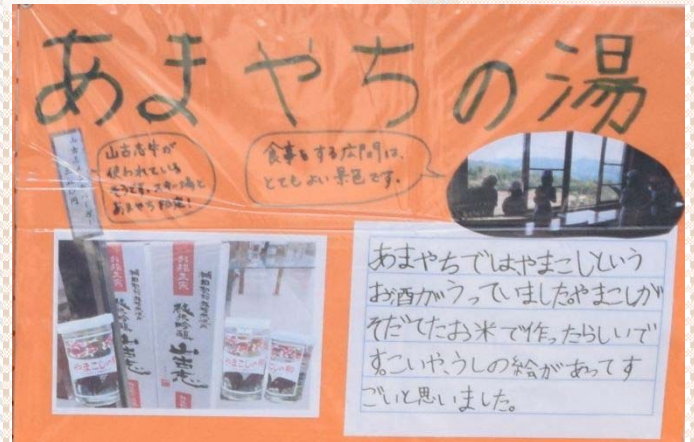 あまやちの湯
山古志牛が
使われている
そうです。スキー場と
あまやち限定!
食事をする広間は、
とてもよい景色です。
あまやちではやまこしという
お酒がうっていました。やまこしが
そだてたお米で作ったらしいで
す。こいや、うしの絵があってす
ごいと思いました。
純米吟醸
山古志
やまこしの